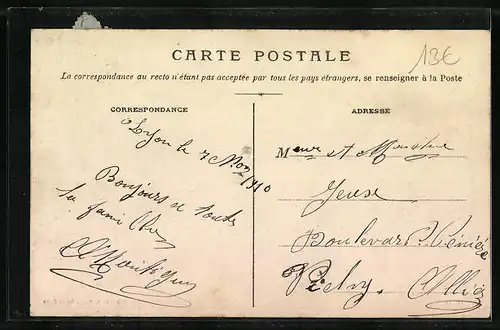 CARTE POSTALE
13€
La correspondance au recto n'étant pas acceptée par tous les pays étrangers, se renseigner à la Poste
CORRESPONDANCE
Lyon le 7 Nov
1910
Bonjours de toute
la famille
ADRESSE
et
Boulevard
Vichy. Allier